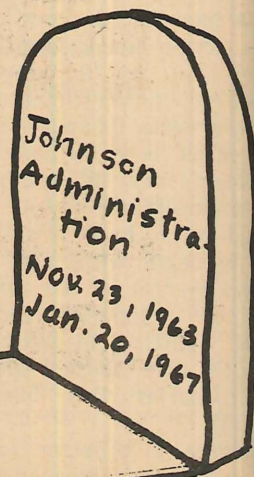 Johnson
Administra-
tion
Nov. 23, 1963
Jan. 20, 1967